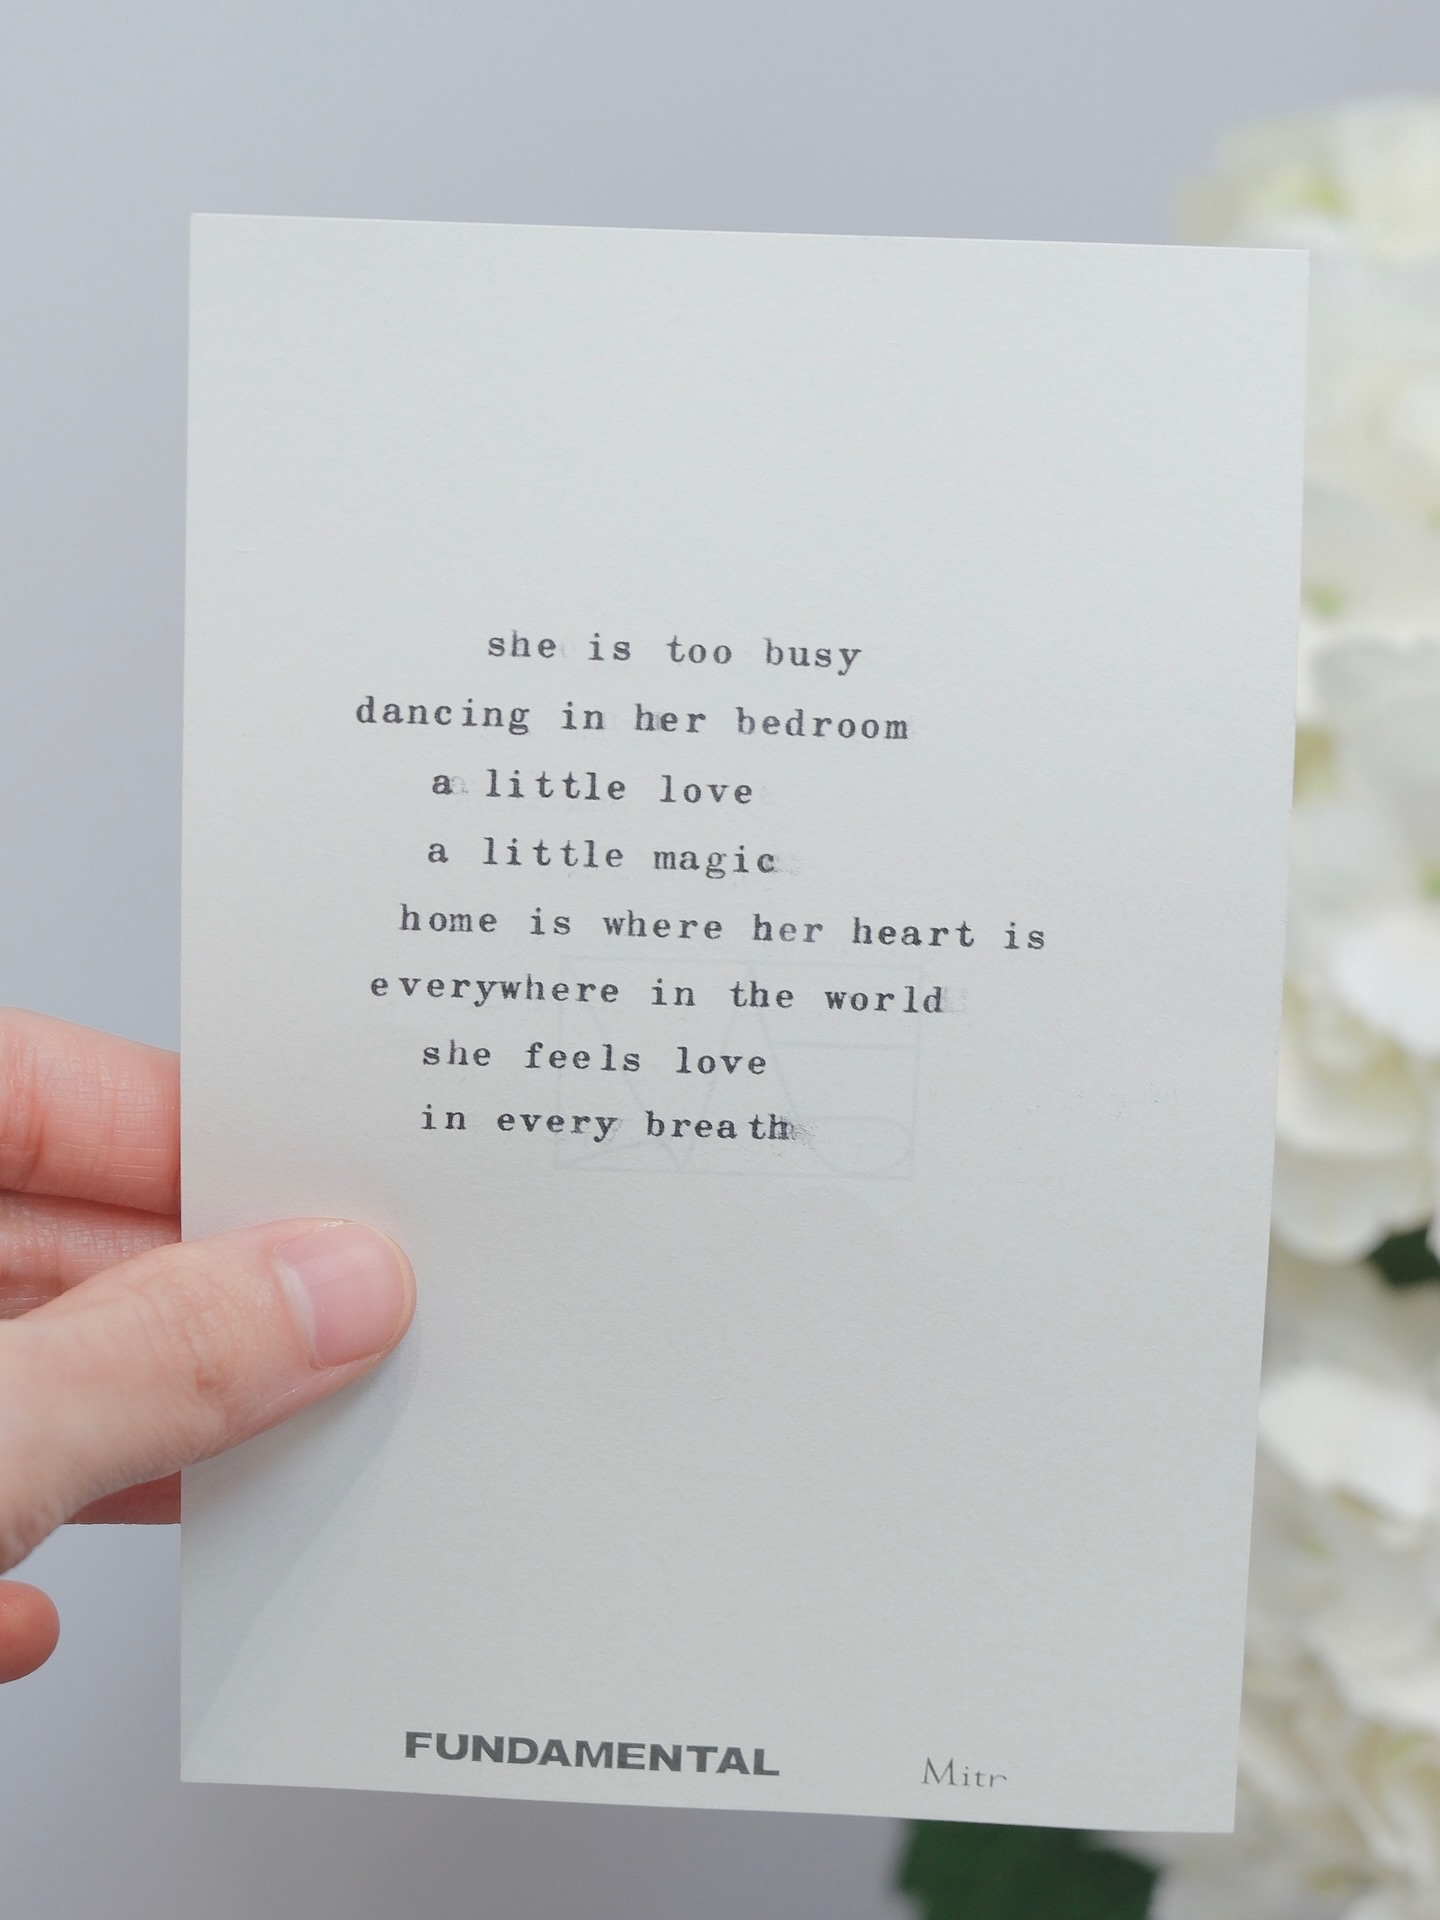 she is too busy
dancing in her bedroom
a little love
a little magic
home is where her heart is
everywhere in the world
she feels love
in every breath
FUNDAMENTAL Mitr